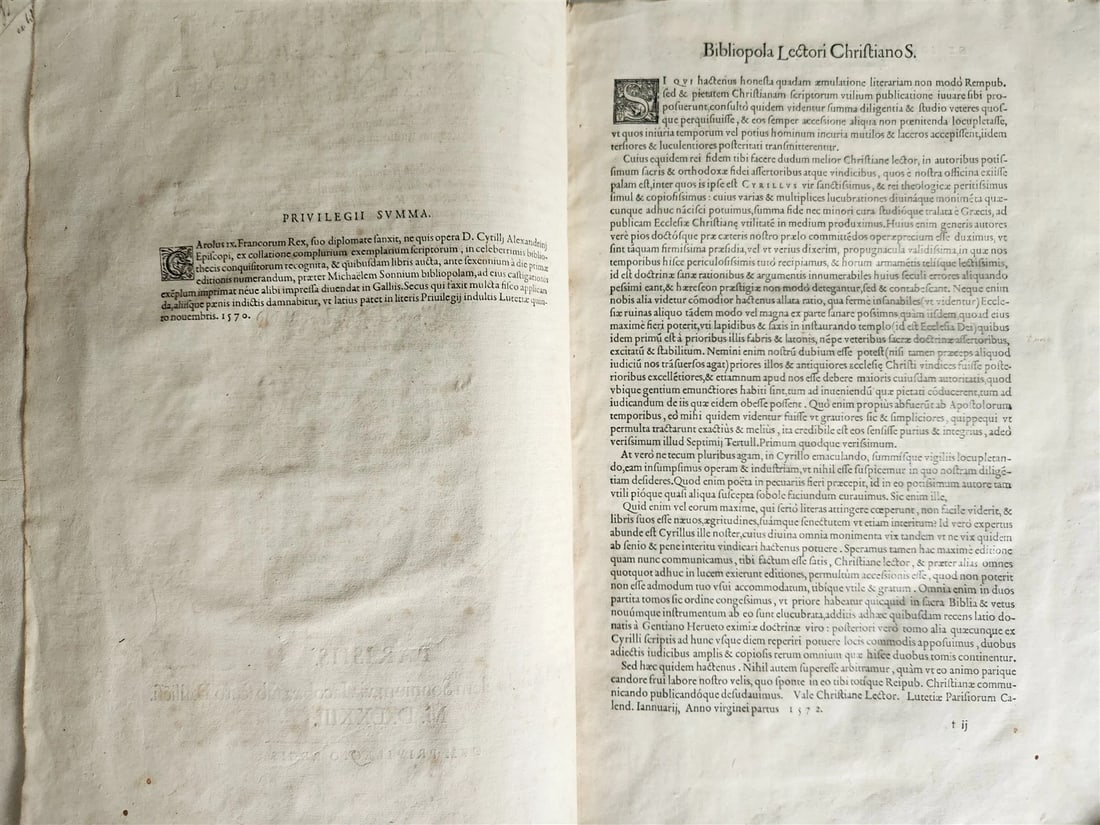 PRIVILEGII SVMMA.
CArolus ix. Francorum Rex, suo diplomate sanxit, ne quis opera D. Cyrillj Alexandrinj
Episcopi, ex collatione complurium exemplarium scriptorum, in celeberrimis biblio-
thecis conquisitorum recognita, & quibusdam libris aucta, ante sexennium à die primæ
editionis numerandum, præter Michaëlem Sonnium bibliopolam, ad eius castigationis
exēplum imprimat neue alibi impressa diuendat in Galliis. Secus qui faxit multa fisco applican
da, aliisque pœnis indictis damnabitur, vt latius patet in literis Priuilegij indultis Lutetiæ quin-
to nouembris. 1570.
Bibliopola Lectori Christiano S.
SI QVI hactenus honesta quadam æmulatione literariam non modò Rempub.
sed & pietatem Christianam scriptorum vtilium publicatione iuuare sibi pro-
posuerunt, consultò quidem videntur summa diligentia & studio veteres quos-
que perquisiuisse, & eos semper accessione aliqua non pœnitenda locupletasse,
vt quos iniuria temporum vel potius hominum incuria mutilos & laceros accepissent, iidem
tersiores & luculentiores posteritati transmitterentur.
Cuius equidem rei fidem tibi facere dudum melior Christiane lector, in autoribus potis-
simum sacris & orthodoxæ fidei assertoribus atque vindicibus, quos è nostra officina exiisse
palam est, inter quos is ipse est CYRILLVS vir sanctissimus, & rei theologicæ peritissimus
simul & copiosissimus : cuius varias & multiplices lucubrationes diuináque monimēta quæ-
cunque adhuc nācisci potuimus, summa fide nec minori cura studióque tralata è Græcis, ad
publicam Ecclesiæ Christianę vtilitatē in medium produximus. Huius enim generis autores
verè pios doctósque præ cæteris nostro prælo committēdos operæprecium esse duximus, vt
sint tāquam firmissima præsidia, vel vt verius dixerim, propugnacula validissima, in quæ nos
temporibus hisce periculosissimis tutò recipiamus, & horum armamētis telisque lectissimis,
id est doctrinæ sanæ rationibus & argumentis innumerabiles huius seculi errores aliquando
pessimi eant, & hæreseon præstigiæ non modò detegantur, sed & contabescant. Neque enim
nobis alia videtur cōmodior hactenus allata ratio, qua ferme insanabiles (vt videntur) Eccle-
siæ ruinas aliquo tādem modo vel magna ex parte sanare possimus quàm iisdem, quoad eius
maximè fieri poterit, vti lapidibus & saxis in instaurando templo (id est Ecclesia Dei) quibus
idem primū est à prioribus illis fabris & latonis, nēpe veteribus sacræ doctrinæ assertoribus,
excitatū & stabilitum. Nemini enim nostrū dubium esse potest (nisi tamen præceps aliquod
iudiciū nos trāsuersos agat) priores illos & antiquiores ecclesię Christi vindices fuisse poste-
rioribus excellētiores, & etiamnum apud nos esse debere maioris cuiusdam autoritatis, quod
vbique gentium emunctiores habiti sint, tum ad inueniendū quæ pietati cōducerent, tum ad
iudicandum de iis quæ eidem obesse possent. Quò enim propiùs abfuerūt ab Apostolorum
temporibus, eò mihi quidem videntur fuisse vt grauiores sic & simpliciores, quippequi vt
permulta tractarunt exactiùs & meliùs, ita credibile est eos sensisse purius & integrius, adeò
verissimum illud Septimij Tertull. Primum quodque verissimum.
At verò ne tecum pluribus agam, in Cyrillo emaculando, summisque vigiliis locupletan-
do, eam insumpsimus operam & industriam, vt nihil esse suspicemur in quo nostram diligē-
tiam desideres. Quod enim poëta in pecuariis fieri præcepit, id in eo potissimum autore tam
vtili pióque quasi aliqua suscepta sobole faciundum curauimus. Sic enim ille,
Quid enim vel eorum maxime, qui seriò literas attingere cœperunt, non facile viderit, &
libris suos esse næuos, ægritudines, suámque senectutem vt etiam interitum? Id verò expertus
abunde est Cyrillus ille noster, cuius diuina omnia monimenta vix tandem vt ne vix quidem
ab senio & pene interitu vindicari hactenus potuere. Speramus tamen hac maximè editione
quam nunc communicamus, tibi factum esse satis, Christiane lector, & præter alias omnes
quotquot adhuc in lucem exierunt editiones, permultùm accessionis esse, quod non poterit
non esse admodum tuo vsui accommodatum, tibique vtile & gratum. Omnia enim in duos
partita tomos sic ordine congessimus, vt priore habeatur quicquid in sacra Biblia & vetus
nouúmque instrumentum ab eo sunt elucubrata, additis adhæc quibusdam recens latio do-
natis à Gentiano Herueto eximiæ doctrinæ viro : posteriori verò tomo alia quæcunque ex
Cyrilli scriptis ad hunc vsque diem reperiri potuere locis commodis apposuimus, duobus
adiectis iudicibus amplis & copiosis rerum omnium quæ hisce duobus tomis continentur.
Sed hæc quidem hactenus. Nihil autem superesse arbitramur, quàm vt eo animo parique
candore frui labore nostro velis, quo sponte in eo tibi totíque Reipub. Christianæ commu-
nicando publicandóque desudauimus. Vale Christiane Lector. Lutetiæ Parisiorum Ca-
lend. Iannuarij, Anno virginei partus 1572.
t ij